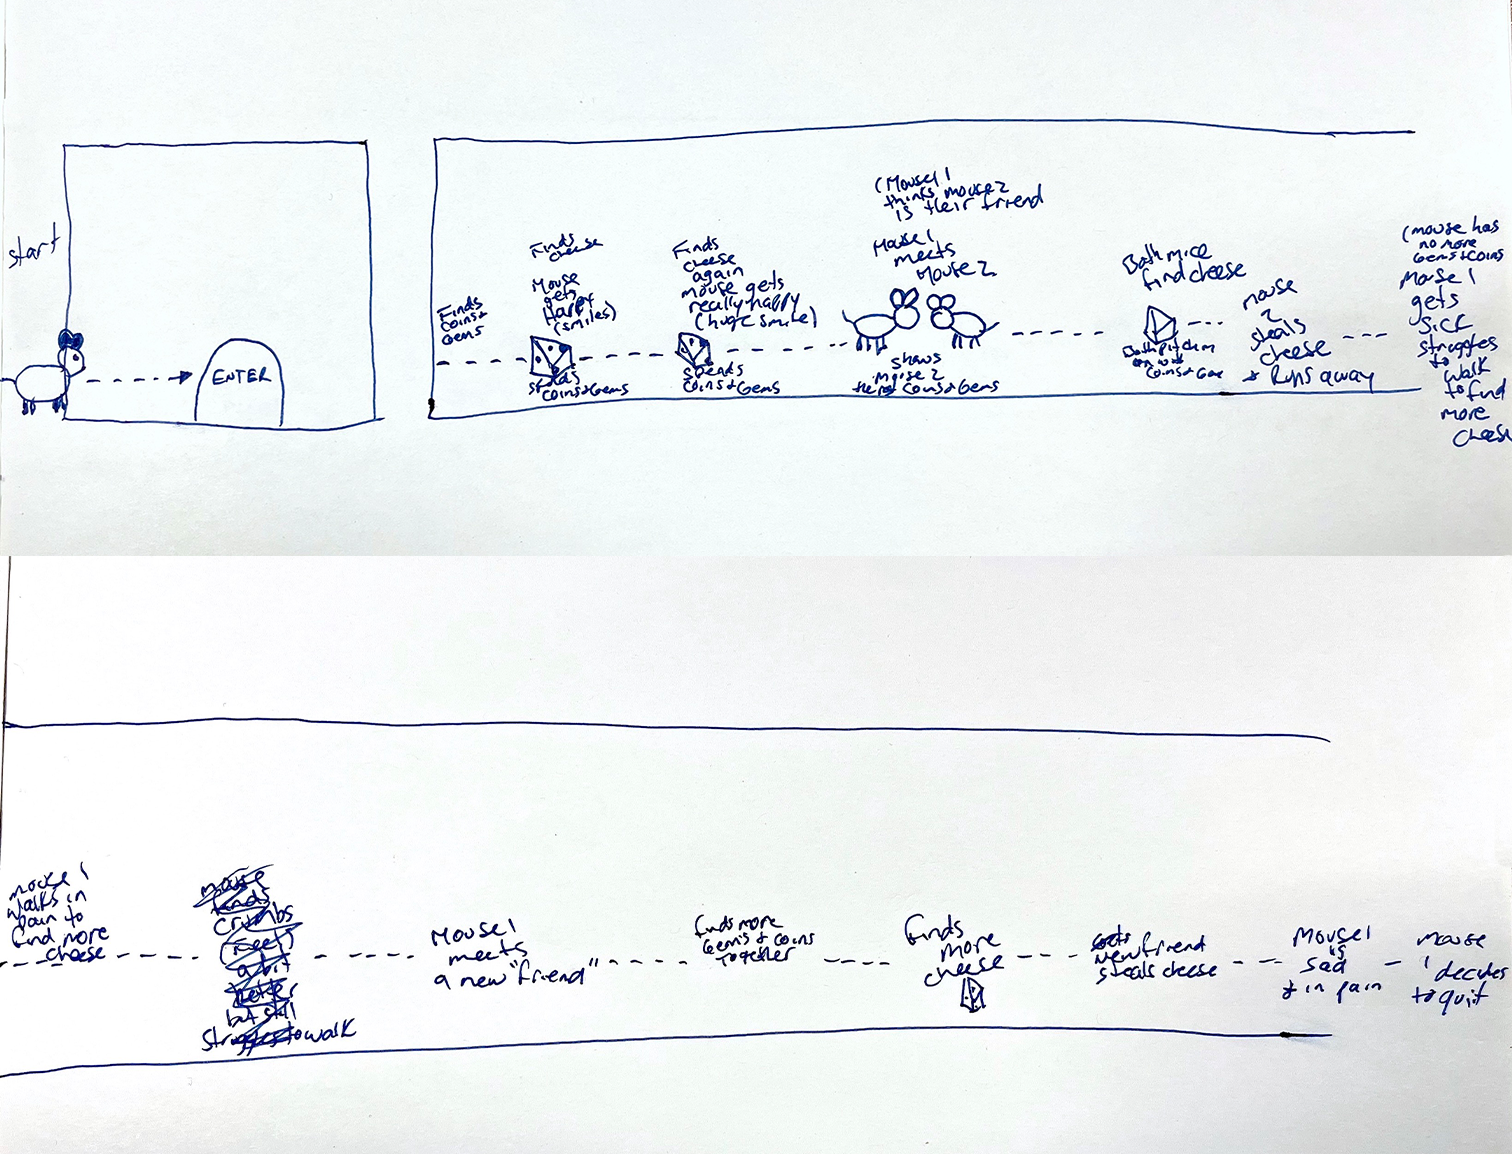 start
ENTER
Finds
coins+
Gems
Finds
cheese
Mouse
gets
Happy
(smiles)
coins+Gems
Finds
cheese
again
mouse gets
really happy
(huge smile)
spends
coins+Gems
(Mouse1
thinks mouse2
is their friend
Mouse1
meets
Mouse2
shows
mouse2
coins+Gems
Both mice
find cheese
Both pitch in
coins+
mouse
2
steals
cheese
+ Runs away
(mouse has
no more
Gems+coins
Mouse 1
gets
sick
struggles
to
walk
to find
more
cheese
mouse1
walks in
pain to
find more
cheese
mouse
finds
crumbs
(feels
a bit
better
but still
struggles to walk
Mouse1
meets
a new "friend"
finds more
Gems + coins
together
Finds
more
cheese
new friend
steals cheese
Mouse1
is
sad
+ in pain
mouse
1 decides
to quit